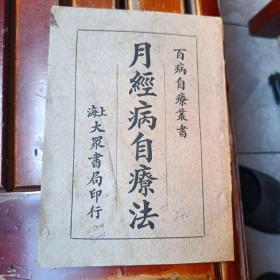 百病自療叢書
月經病自療法
上海大眾書局印行